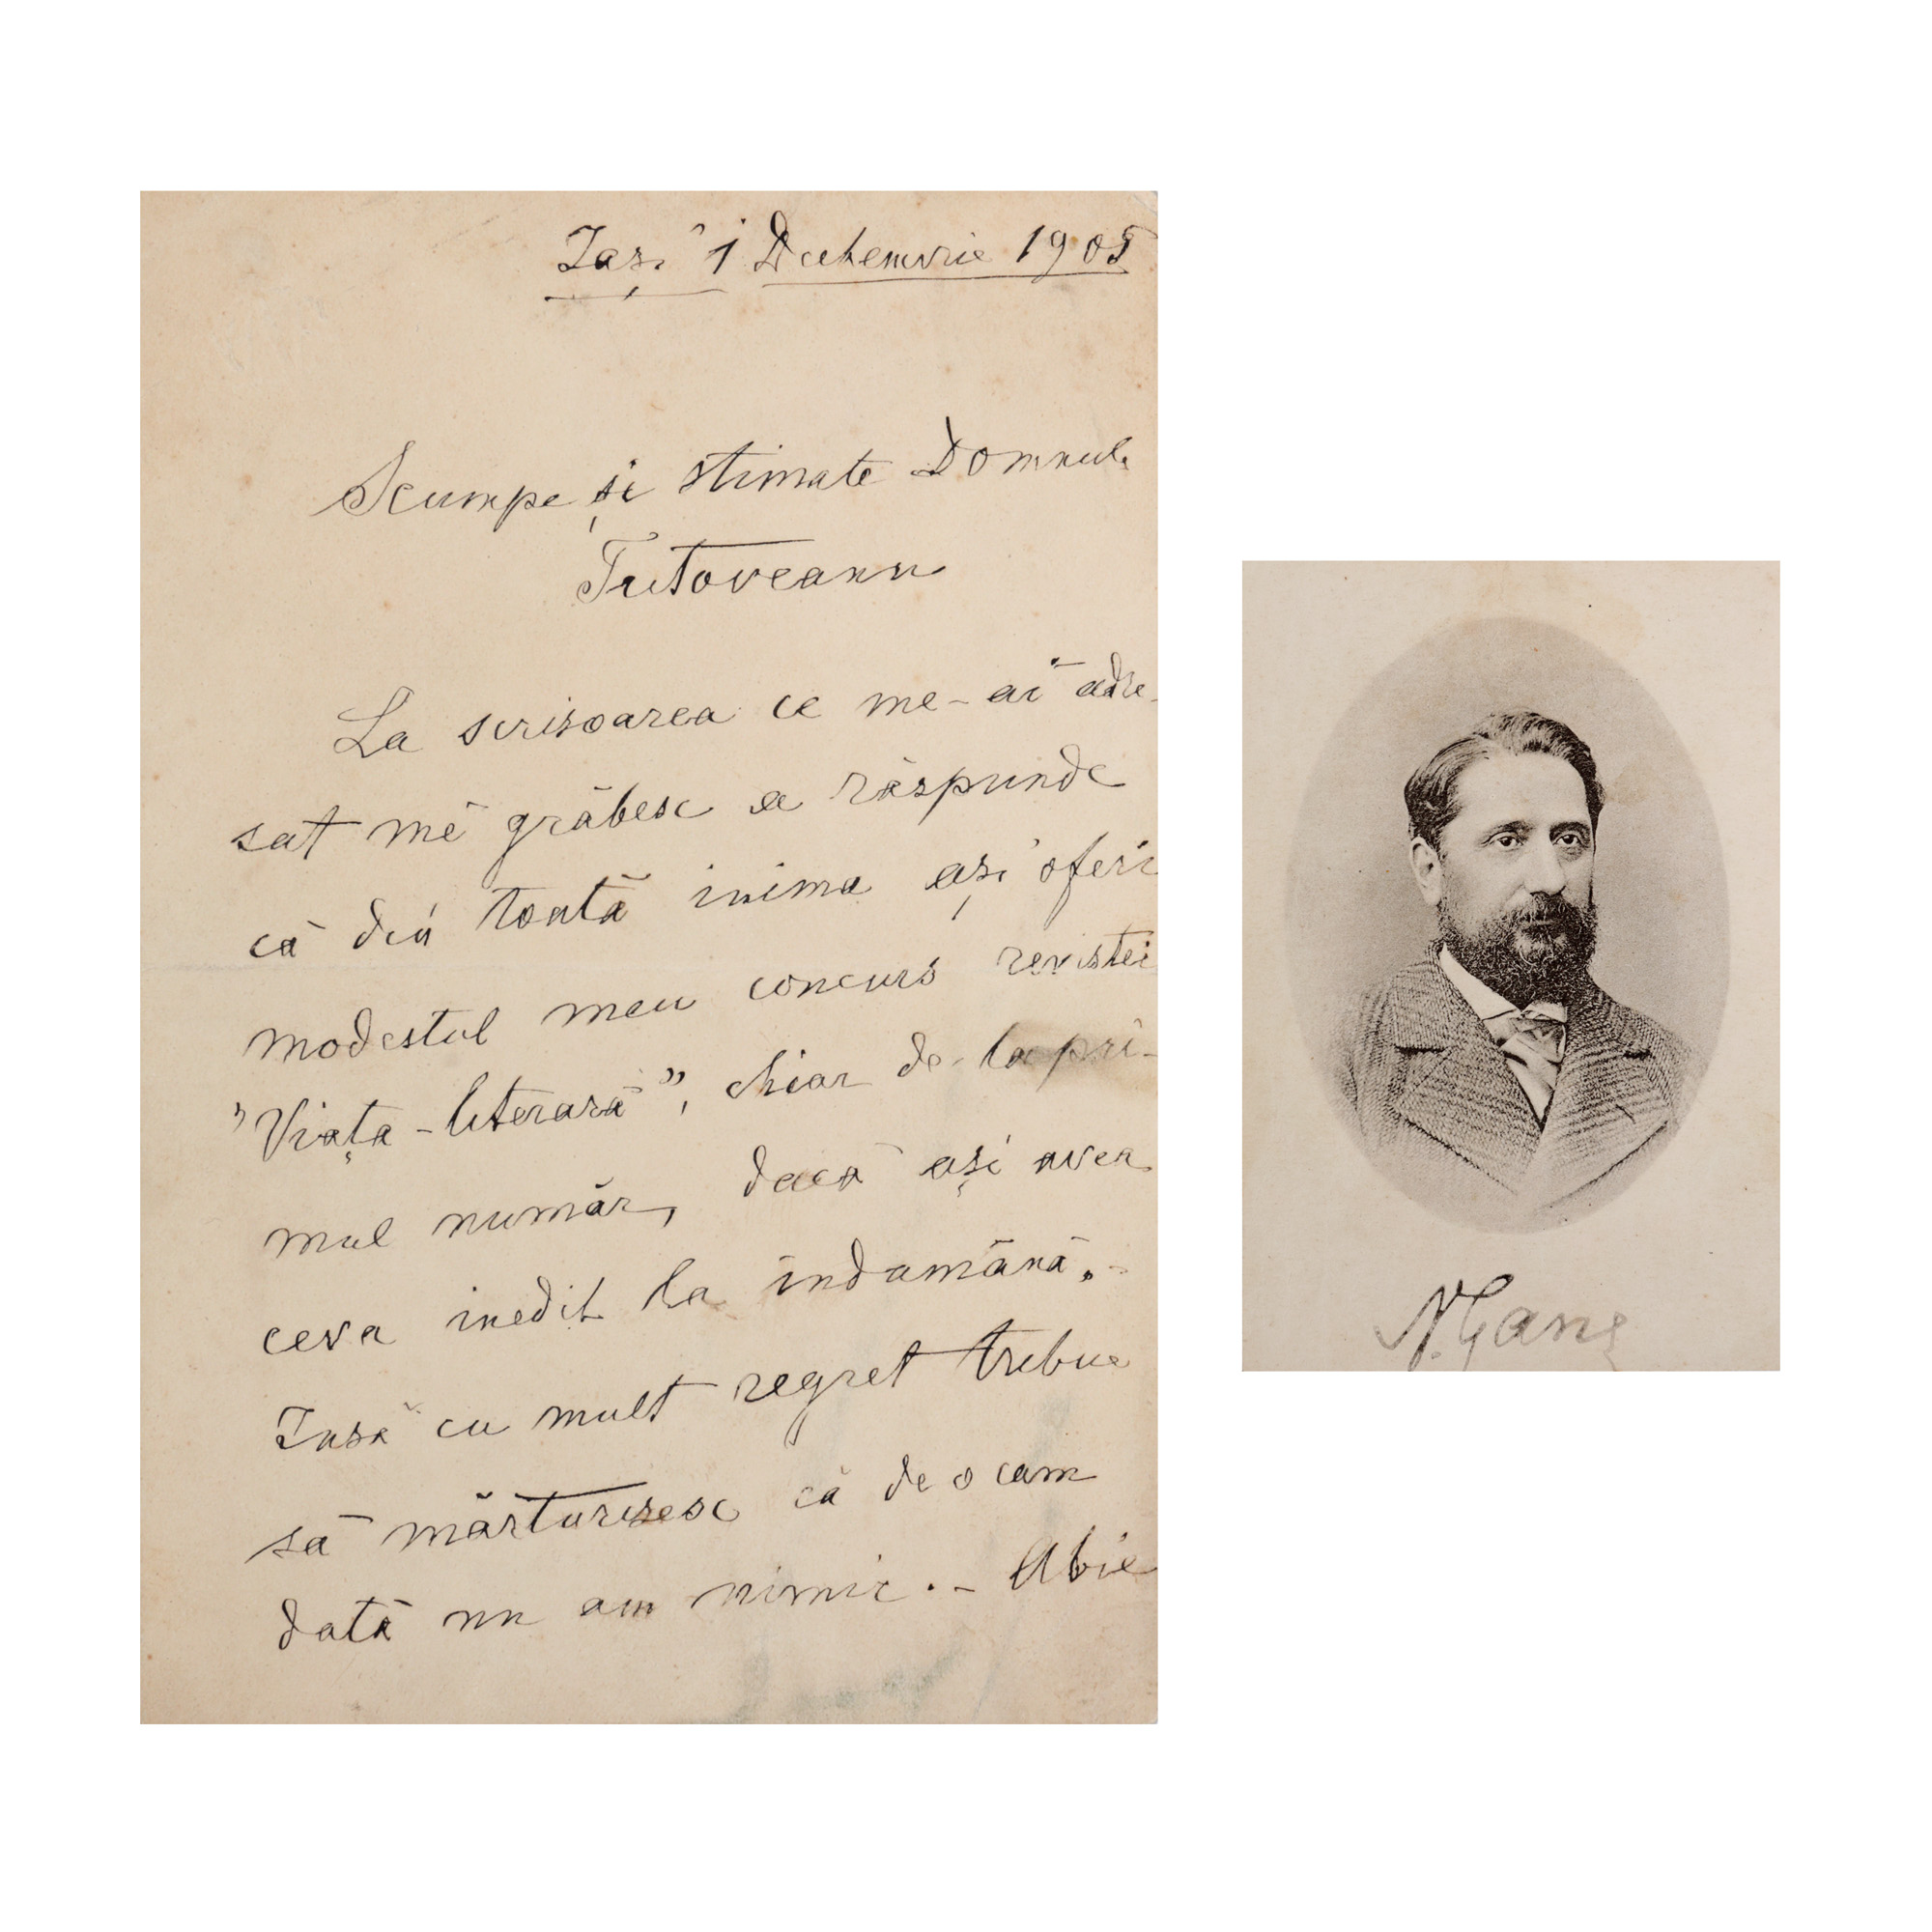 Iași 1 Dechemvrie 1905
Scumpe și stimate Domnule
Tutoveanu
La scrisoarea ce me-ai adre-
sat mĕ grăbesc a răspunde
că din toată inima ași oferi
modestul meu concurs revistei
"Viața-literară", chiar de la pri-
mul număr, dacă ași avea
ceva inedit la îndămână.-
Însă cu mult regret trebue
să mărturisesc că de o cam
dată nu am nimic.- Abie
N. Gane